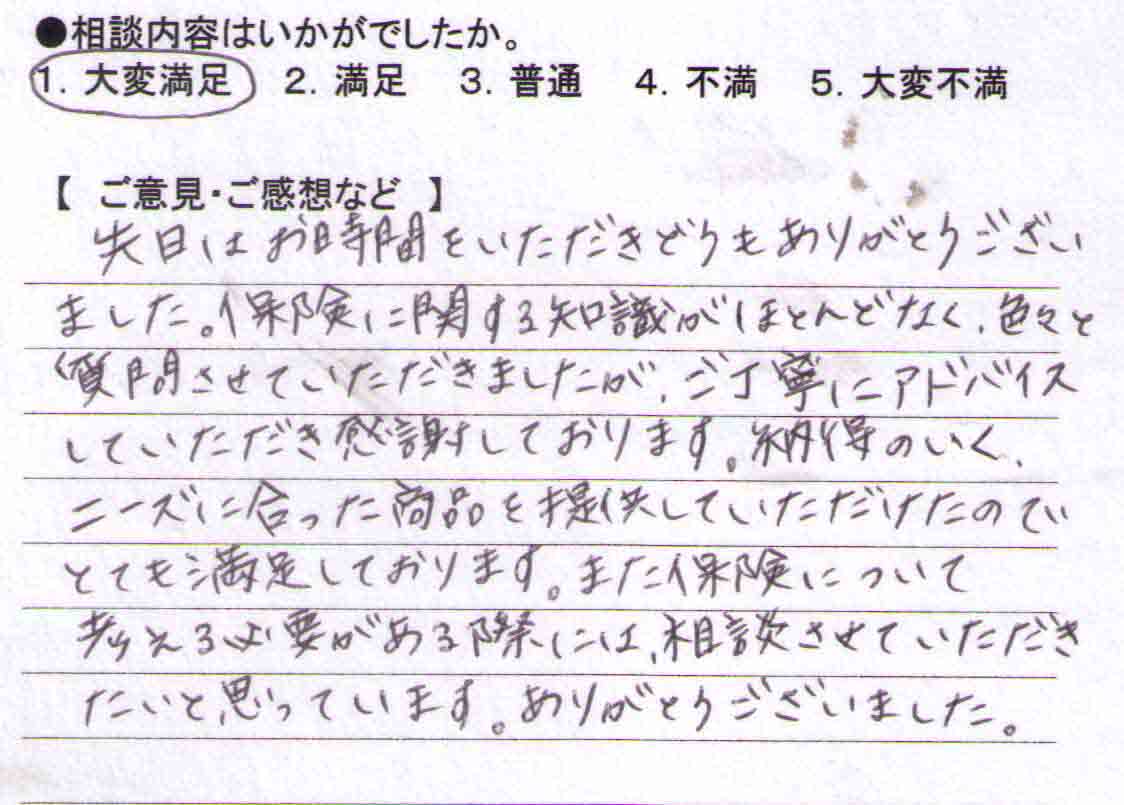 ●相談内容はいかがでしたか。
1. 大変満足 2. 満足 3. 普通 4. 不満 5. 大変不満
【 ご意見・ご感想など 】
先日はお時間をいただきどうもありがとうござい
ました。保険に関する知識がほとんどなく、色々と
質問させていただきましたが、ご丁寧にアドバイス
していただき感謝しております。納得のいく、
ニーズに合った商品を提供していただけたので
とても満足しております。また保険について
考える必要がある際には、相談させていただき
たいと思っています。ありがとうございました。